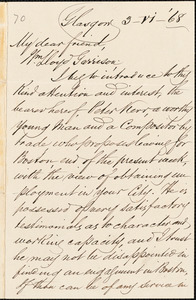 70
Glasgow 3-VI-'68
My dear friend,
Wm Lloyd Garrison
I beg to introduce to thy
kind attention and interest, the
bearer hereof Peter Kerr, a worthy
young man and a Compositor to
trade who proposes leaving for
Boston end of the present week,
with the view of obtaining em
ployment in your City. He is
possessed of very satisfactory
testimonials as to character and
working capacity, and I trust
he may not be disappointed in
finding an engagement in Boston.
If thou can be of any service in